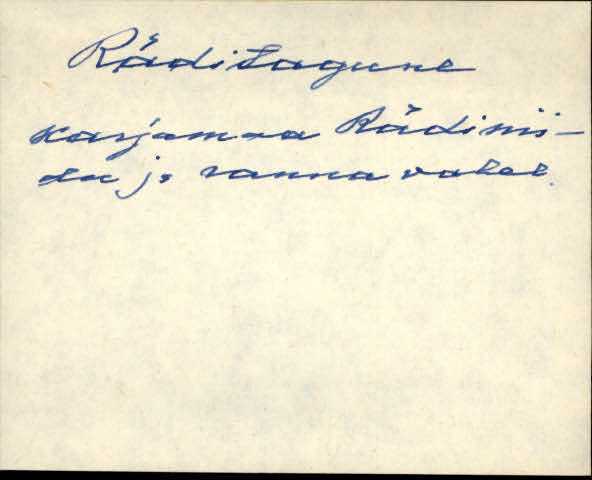 Räditagune
karjamaa Rädinii-
du ja ranna vahel.